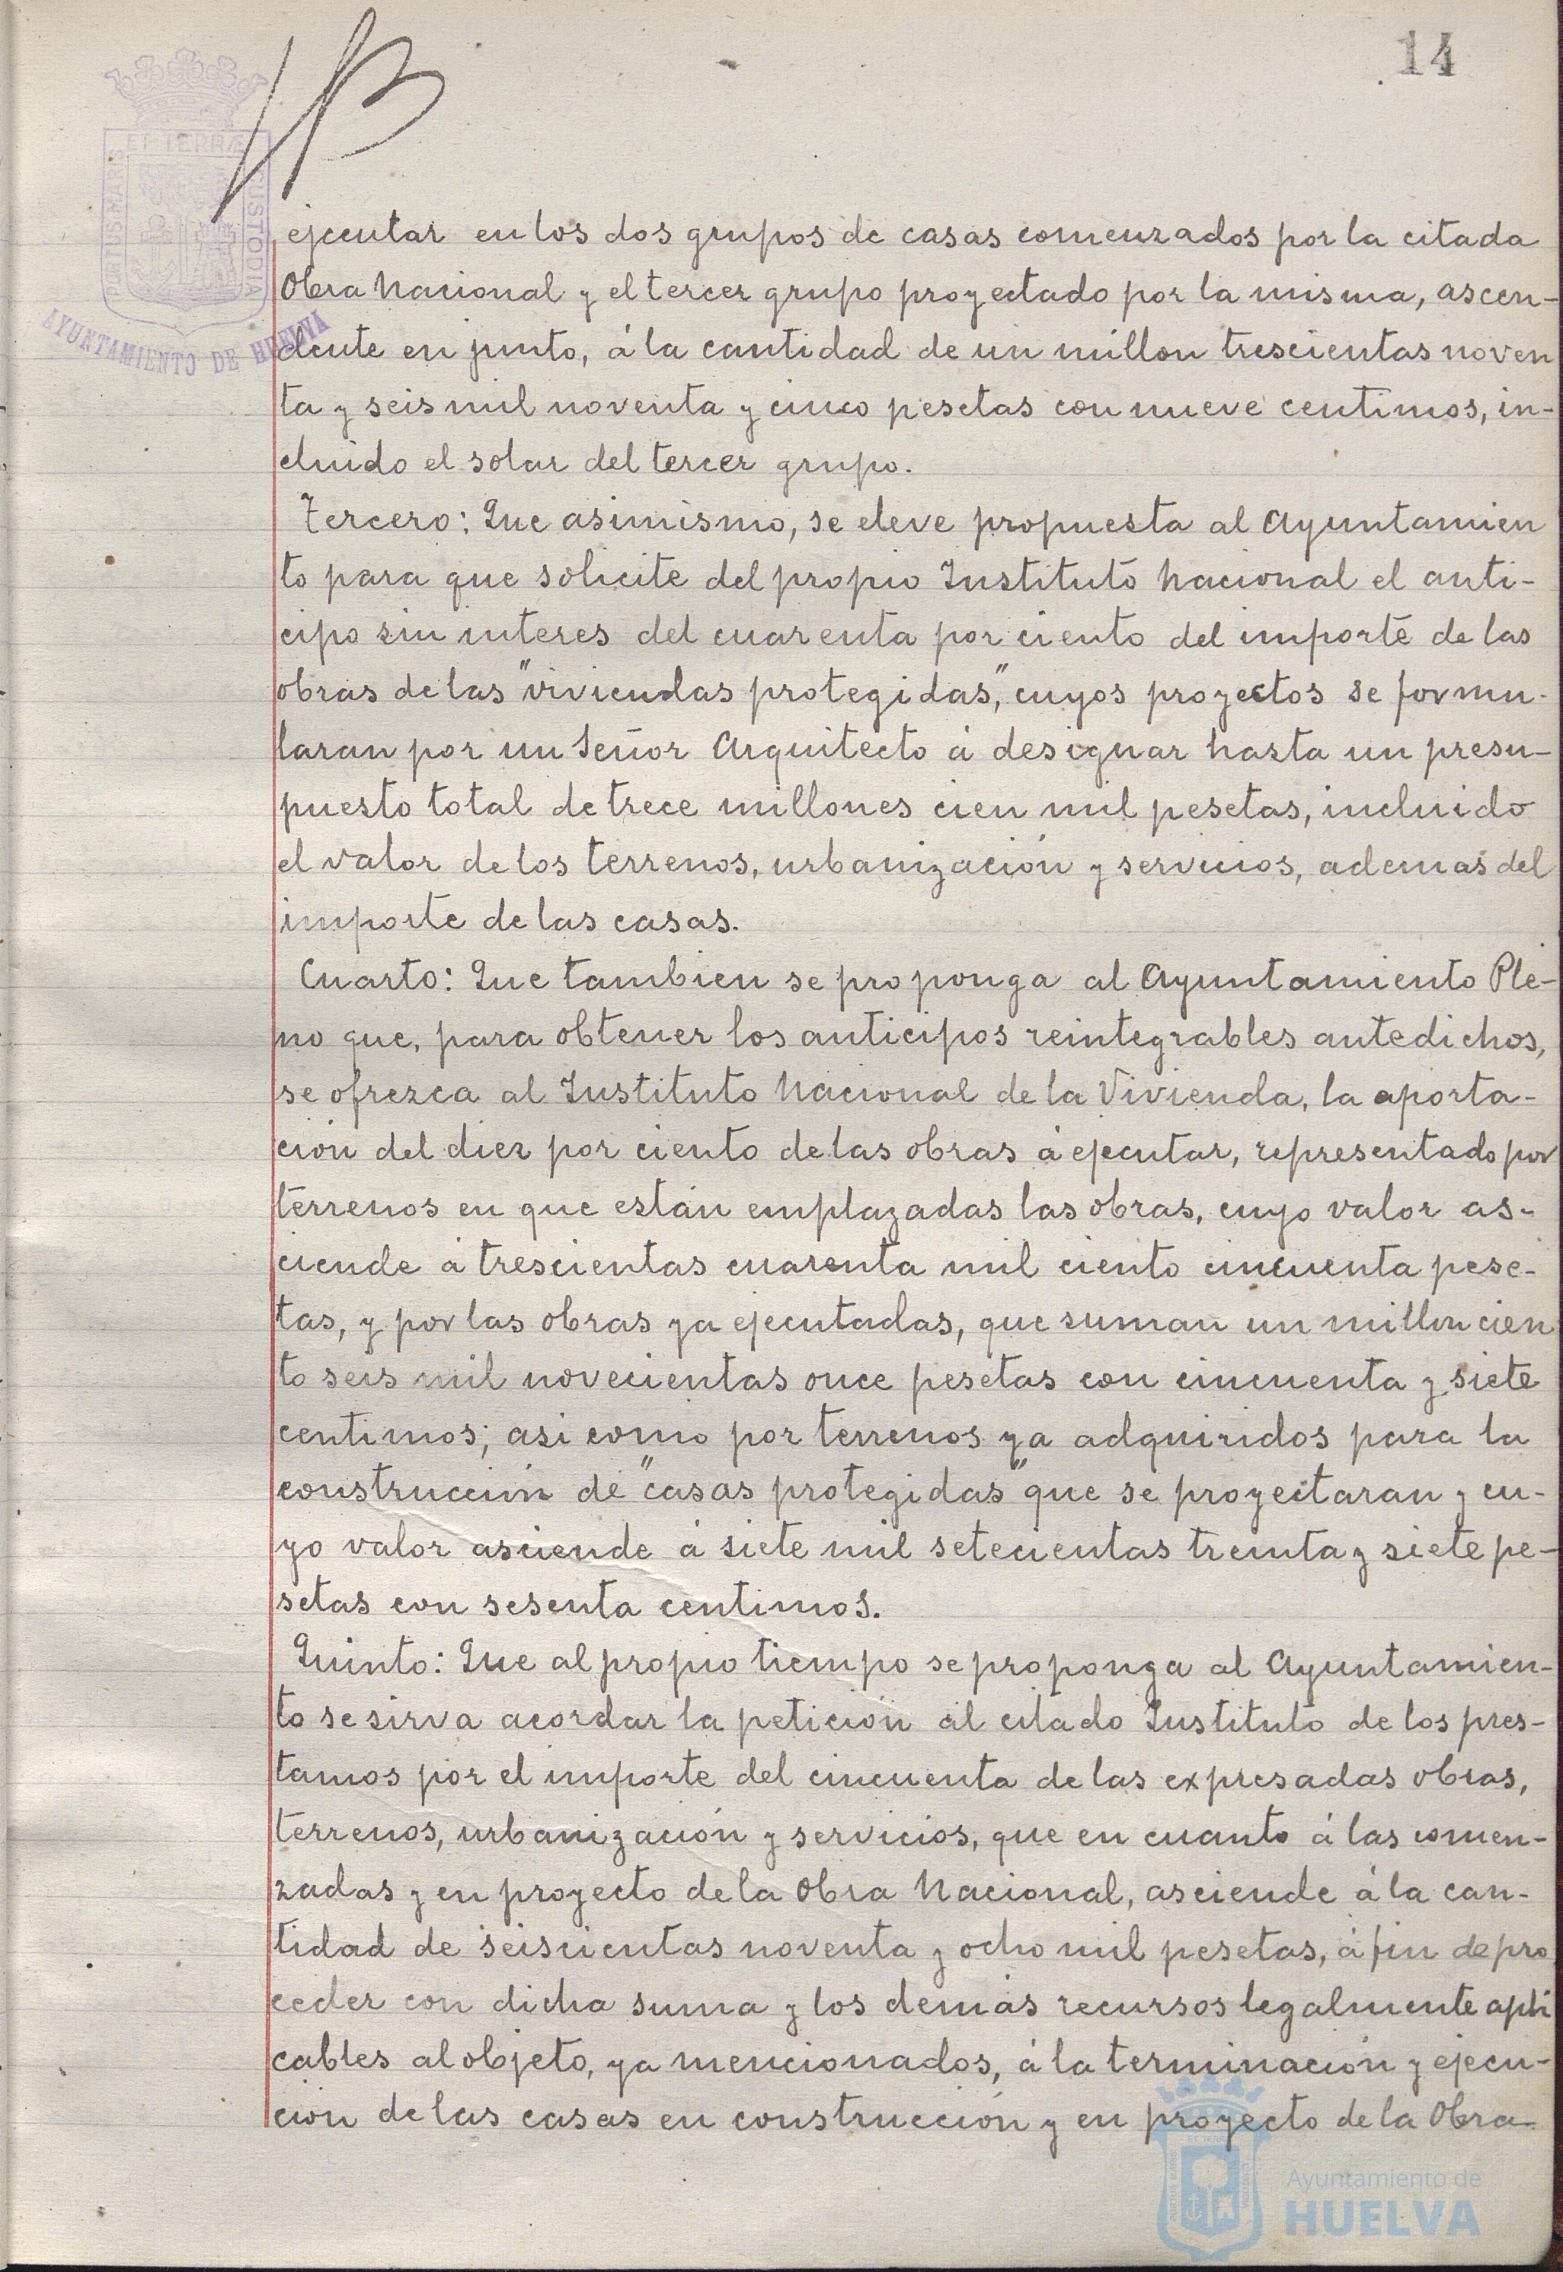 14
PORTUS MARIS ET TERRÆ CUSTODIA
AYUNTAMIENTO DE HUELVA
ejecutar en los dos grupos de casas comenzados por la citada
Obra Nacional y el tercer grupo proyectado por la misma, ascen-
dente en junto, á la cantidad de un millon trescientas noven
ta y seis mil noventa y cinco pesetas con nueve centimos, in-
cluido el solar del tercer grupo.
Tercero: Que asimismo, se eleve propuesta al Ayuntamien
to para que solicite del propio Instituto Nacional el anti-
cipo sin interes del cuarenta por ciento del importe de las
obras de las "viviendas protegidas", cuyos proyectos se formu-
laran por un Señor Arquitecto á designar hasta un presu-
puesto total de trece millones cien mil pesetas, incluido
el valor de los terrenos, urbanización y servicios, ademas del
importe de las casas.
Cuarto: Que tambien se proponga al Ayuntamiento Ple-
no que, para obtener los anticipos reintegrables antedichos,
se ofrezca al Instituto Nacional de la Vivienda, la aporta-
ción del diez por ciento de las obras á ejecutar, representado por
terrenos en que están emplazadas las obras, cuyo valor as-
ciende á trescientas cuarenta mil ciento cincuenta pese-
tas, y por las obras ya ejecutadas, que suman un millon cien
to seis mil novecientas once pesetas con cincuenta y siete
centimos; asi como por terrenos ya adquiridos para la
construcción de "casas protegidas" que se proyectaran y cu-
yo valor asciende á siete mil setecientas treinta y siete pe-
setas con sesenta centimos.
Quinto: Que al propio tiempo se proponga al Ayuntamien-
to se sirva acordar la petición al citado Instituto de los pres-
tamos por el importe del cincuenta de las expresadas obras,
terrenos, urbanización y servicios, que en cuanto á las comen-
zadas y en proyecto de la Obra Nacional, asciende á la can-
tidad de seiscientas noventa y ocho mil pesetas, á fin de pro
ceder con dicha suma y los demás recursos legalmente apli
cables al objeto, ya mencionados, á la terminación y ejecu-
ción de las casas en construcción y en proyecto de la Obra
Ayuntamiento de
HUELVA